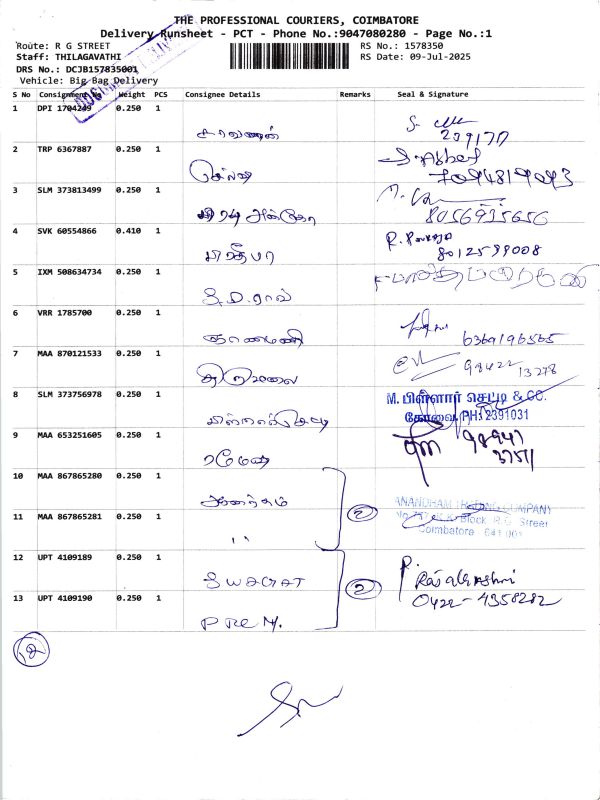 THE PROFESSIONAL COURIERS, COIMBATORE
Delivery Runsheet - PCT - Phone No.:9047080280 - Page No.:1
Route: R G STREET
RS No.: 1578350
Staff: THILAGAVATHI
RS Date: 09-Jul-2025
DRS No.: DCJB157835001
Vehicle: Big Bag Delivery
S No Consignment No Weight PCS Consignee Details Remarks Seal & Signature
1 DPI 1704249 0.250 1 சரவணன்
239177
2 TRP 6367887 0.250 1 செல்வ
7094819093
3 SLM 373813499 0.250 1
8056935656
4 SVK 60554866 0.410 1 பிரதீபா
8012599008
5 IXM 508634734 0.250 1 S.D.ராவ்
6 VRR 1785700 0.250 1 ஞானமணி
6369196565
7 MAA 870121533 0.250 1 திருமலை
98422 13278
8 SLM 373756978 0.250 1
M. பிள்ளார் செட்டி & CO.
கோவை. PH: 2391031
9 MAA 653251605 0.250 1 ரமேஷ்
98947
37511
10 MAA 867865280 0.250 1 ஆனந்தம்
ANANDHAM TRADING COMPANY
11 MAA 867865281 0.250 1 " 2
K.K. Block R.G. Street
Coimbatore - 641 001
12 UPT 4109189 0.250 1 SWAGAT
P. Rajalakshmi
13 UPT 4109190 0.250 1 PREM. 2
0422-4358282